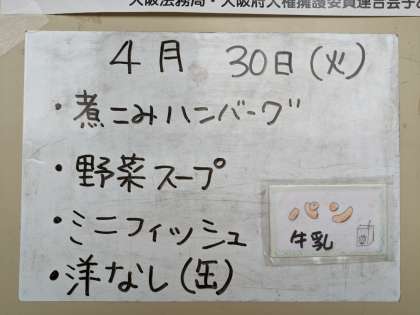 大阪法務局・大阪府人権擁護委員連合会
4月 30日(火)
・煮こみハンバーグ
・野菜スープ
・ミニフィッシュ
・洋なし(缶)
パン
牛乳